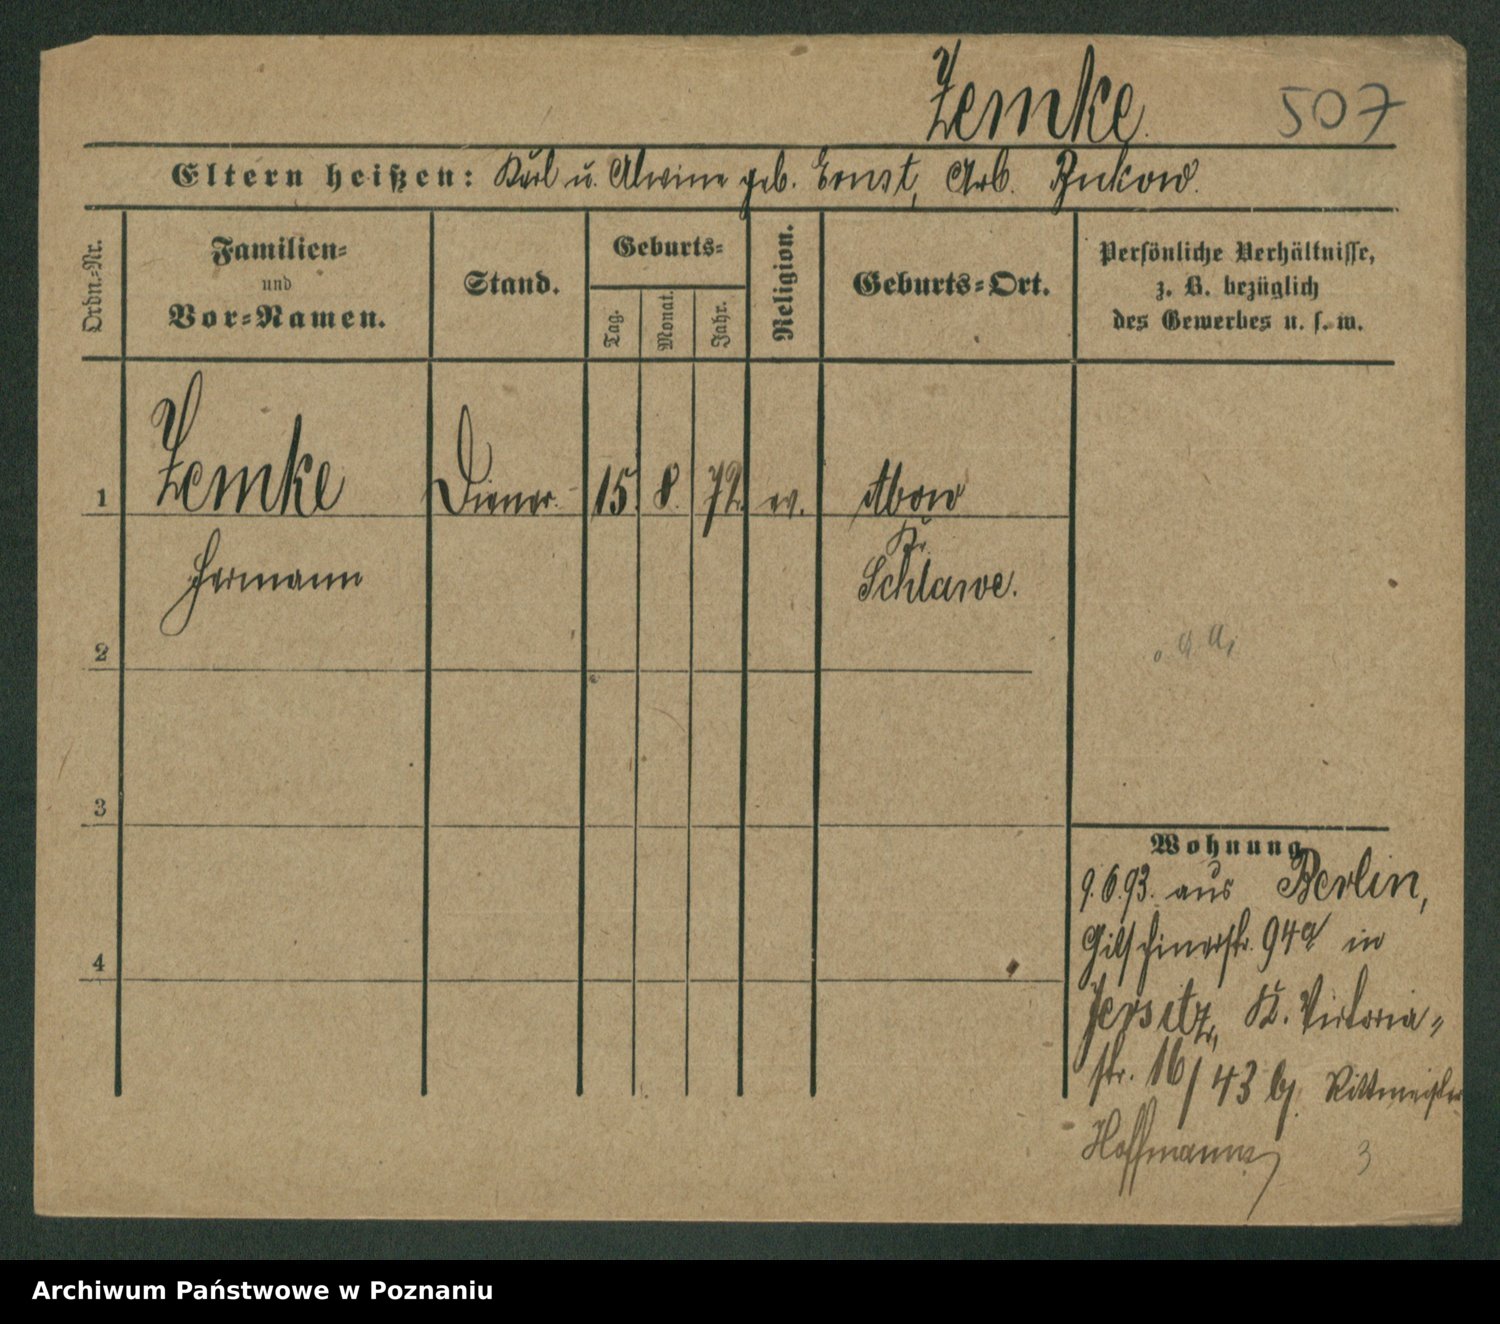 Zemke. 507
Eltern heißen: Karl u. Alwine geb. Ernst, Arb. Zukow.
Ordn.-Nr.
Familien-
und
Vor-Namen.
Stand.
Geburts-
Tag.
Monat.
Jahr.
Religion.
Geburts-Ort.
Persönliche Verhältnisse,
z. B. bezüglich
des Gewerbes u. s. w.
1 Zemke Diener. 15. 8. 72. ev. Abow
Kr.
Hermann Schlawe.
2
3
4
Wohnung
9.6.93. aus Berlin,
Gitschinerstr. 94a in
Jersitz, K. Victoria-
str. 16/43 b/. Rittmeister
Hoffmann
3
Archiwum Państwowe w Poznaniu